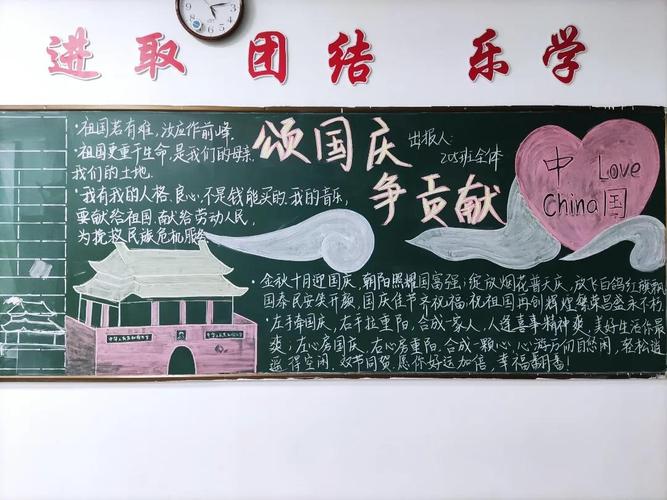 进取 团结 乐学
·祖国若有难，汝应作前峰.
·祖国更重于生命，是我们的母亲，
我们的土地.
·我有我的人格、良心、不是钱能买的.我的音乐，
要献给祖国，献给劳动人民，
为挽救民族危机服务
颂国庆
争贡献
出报人：
205班全体
中 Love
China 国
·金秋十月迎国庆，朝阳照耀国富强；绽放烟花普天庆，放飞白鸽红旗飘
国泰民安笑开颜，国庆佳节齐祝福；祝祖国再创辉煌繁荣昌盛永不朽
·左手牵国庆，右手拉重阳，合成一家人，人逢喜事精神爽，美好生活你最
爽；左心房国庆，右心房重阳，合成一颗心，心游万仞自悠闲，轻松逍
遥得空闲.双节问贺.愿你好运加倍，幸福翻番！